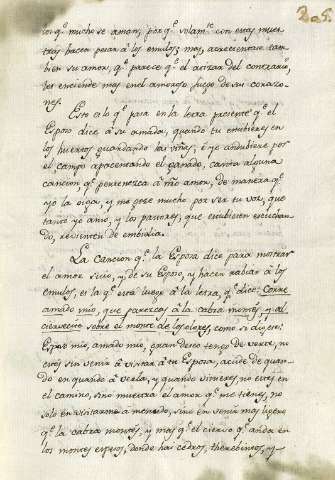 205.
los q.e mucho se aman, por q.e solam.te con estas muer
tras hacen pesar à los emulos; mas, acrecientase tam
bien su amor, q.e parece q.e el atizar del contrario,
les enciende mas en el amoroso fuego de sus corazo
nes.
Esto es lo q.e pasa en la letra presente q.e el
Esposo dice à su amada, quando tu estubieres en
los huertos guardando las viñas, è yo andubiere por
el campo apacentando el ganado, canta alguna
cancion q.e pertenezca à nro amor, de manera q.e
yo la oiga, y me goze mucho por ser tu voz, que
tanto yo amo, y los pastores, que estubieren escuchan
do, rebienten de embidia.
La Cancion q.e la Esposa dice para mostrar
el amor suio, y de su Esposo, y hacer rabiar à los
emulos, es la q.e está luego à la letra, q.e dice: Corre
amado mio, que parezcas à la cabra montés, y al
ciervecito sobre el monte de los olores, como si dixese:
Esposo mio, amado mio, gran deseo tengo de verte, no
estés sin venir à visitar à tu Esposa, acude de quan
do en quando à verla, y quando vinieres no estés en
el camino, sino muestra el amor q.e me tienes, no
solo en visitarme à menudo, sino en venir mas ligero
q.e la cabra montés, y mas q.e el ciervo q.e anda en
los montes espesos, donde hai cedros, therebintos, y